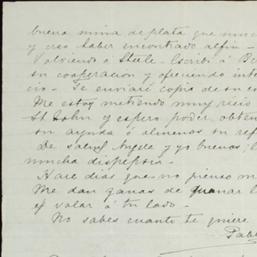 buena mina de plata que nunca
y creo haber encontrado alfin
Volviendo á Steele. Escribí á
su cooperacion y ofreciendo
cio. Te enviaré copia de su
Me estoy metiendo muy recio
St John y espero poder
su ayuda ó al menos su
De salud Angela y yo buenos;
mucha dispepsia.
Hace dias que no pienso
Me dan ganas de
el volar á tu lado.
No sabes cuanto te quiere